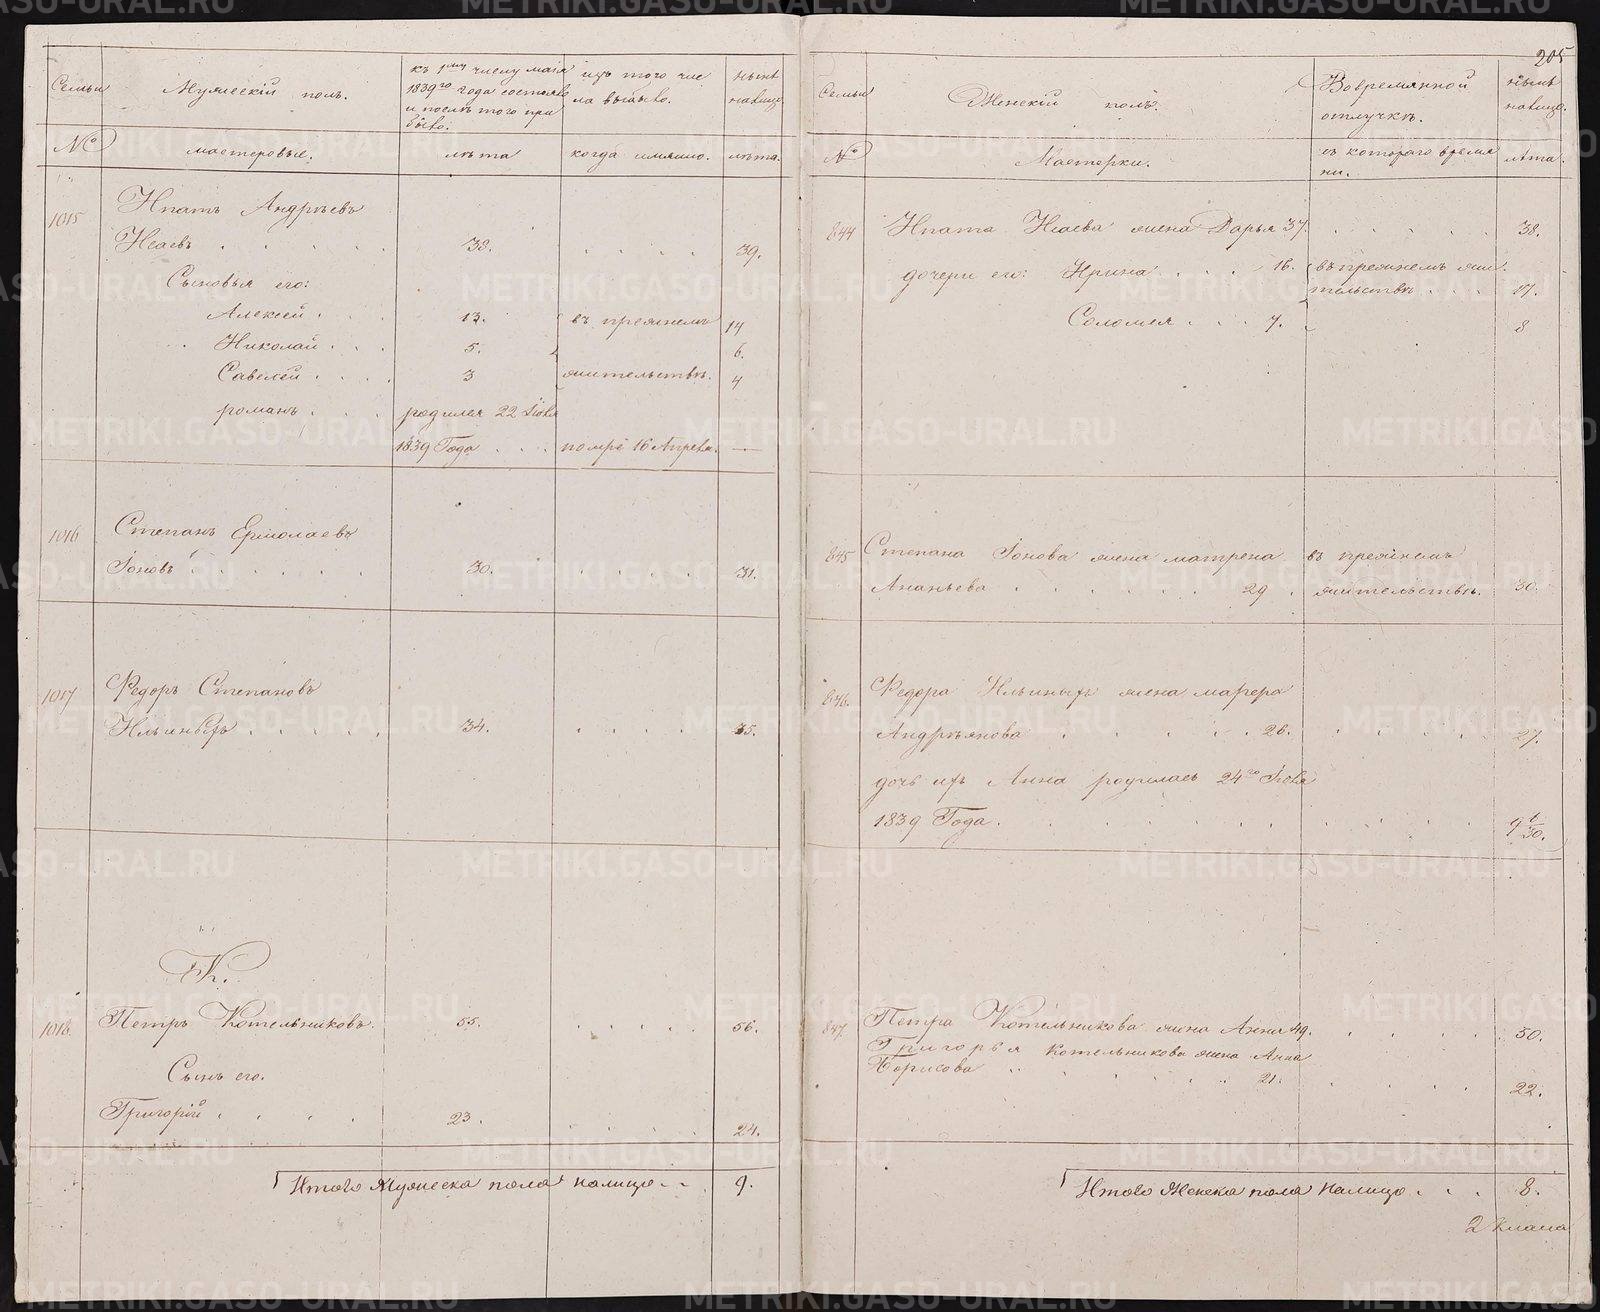 205
Семьи
Мужескій полъ.
къ 1му числу маія
1839го года состояло
и послѣ того при
было.
изъ того чис
ла выбыло.
нынѣ
налицо.
№
мастеровые.
лѣта
когда имянно.
лѣта.
1015
Ипатъ Андрѣевъ
Исаевъ . . . . . 38. . . . . . 39.
Сыновья его:
Алексѣй . . . 13. въ прежнемъ 14
Николай . . . 5. 6.
Савелей . . . . 3 жительствѣ. 4
романъ . . . родился 22 Іюля
1839 Года . . . померъ 16 Апреля. —
1016
Степанъ Ермолаевъ
Іоновъ . . . . . . 30. . . . . . 31.
1017
Федоръ Степановъ
Ильиныхъ . . . . . 34. . . . . 35.
К.
1018.
Петръ Котельниковъ. 55. . . . . . 56.
Сынъ его.
Григорій . . . . 23. . . . . . 24.
Итого Мужеска пола налицо . . . 9.
Семьи
Женскій полъ.
Вовремянной
отлучкѣ.
нынѣ
налицо.
№
Мастерки.
съ котораго время
ни.
лѣта.
844
Ипата Исаева жена Дарья 37. . . . . . 38.
дочери его: Ирина . . . 16. въ прежнемъ жи
тельствѣ . . . 17.
Соломея . . . 7. 8
845
Степана Іонова жена матрена въ прежнемъ
Ананьева . . . . . . 29 . жительствѣ. 30.
846.
Федора Ильиныхъ жена марѳра
Андрѣянова . . . . . 26. . . . . . 27.
дочь ихъ Анна родилась 24го Іюля
1839 Года. . . . . . . . . . . 9 6/30.
847
Петра Котельникова жена Анна 49. . . . . 50.
Григорья Котельникова жена Анна
Борисова . . . . . . 21. . . . . 22.
Итого Женска пола налицо . . . 8.
2 Класа